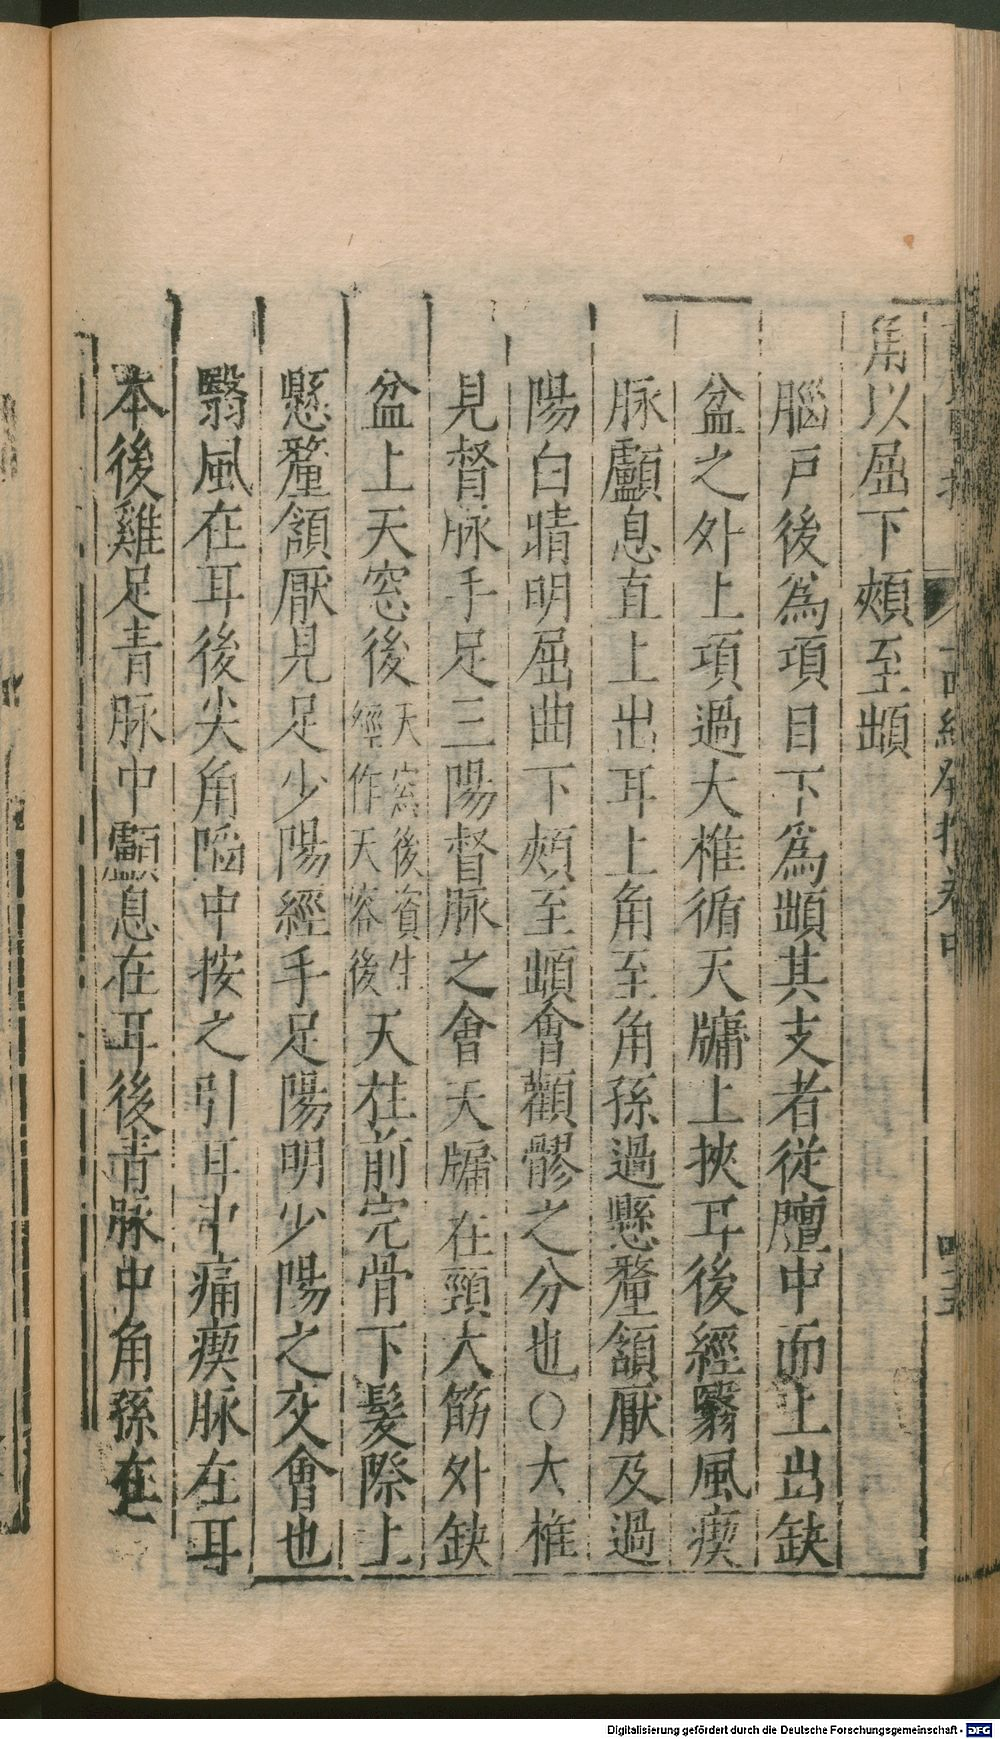 角以屈下頰至䪼
腦戶後為項目下為䪼其支者從膻中而上出缺
盆之外上項過大椎循天牖上挾耳後經翳風瘈
脉顱息直上出耳上角至角孫過懸釐頷厭及過
陽白睛明屈曲下頰至䪼會顴髎之分也○大椎
見督脉手足三陽督脉之會天牖在頸大筋外缺
盆上天窓後天窓後資生經作天容後天柱前完骨下髮際上
懸釐頷厭見足少陽經手足陽明少陽之交會也
翳風在耳後尖角陷中按之引耳中痛瘈脉在耳
本後雞足青脉中顱息在耳後青脉中角孫在
四五
Digitalisierung gefördert durch die Deutsche Forschungsgemeinschaft - DFG